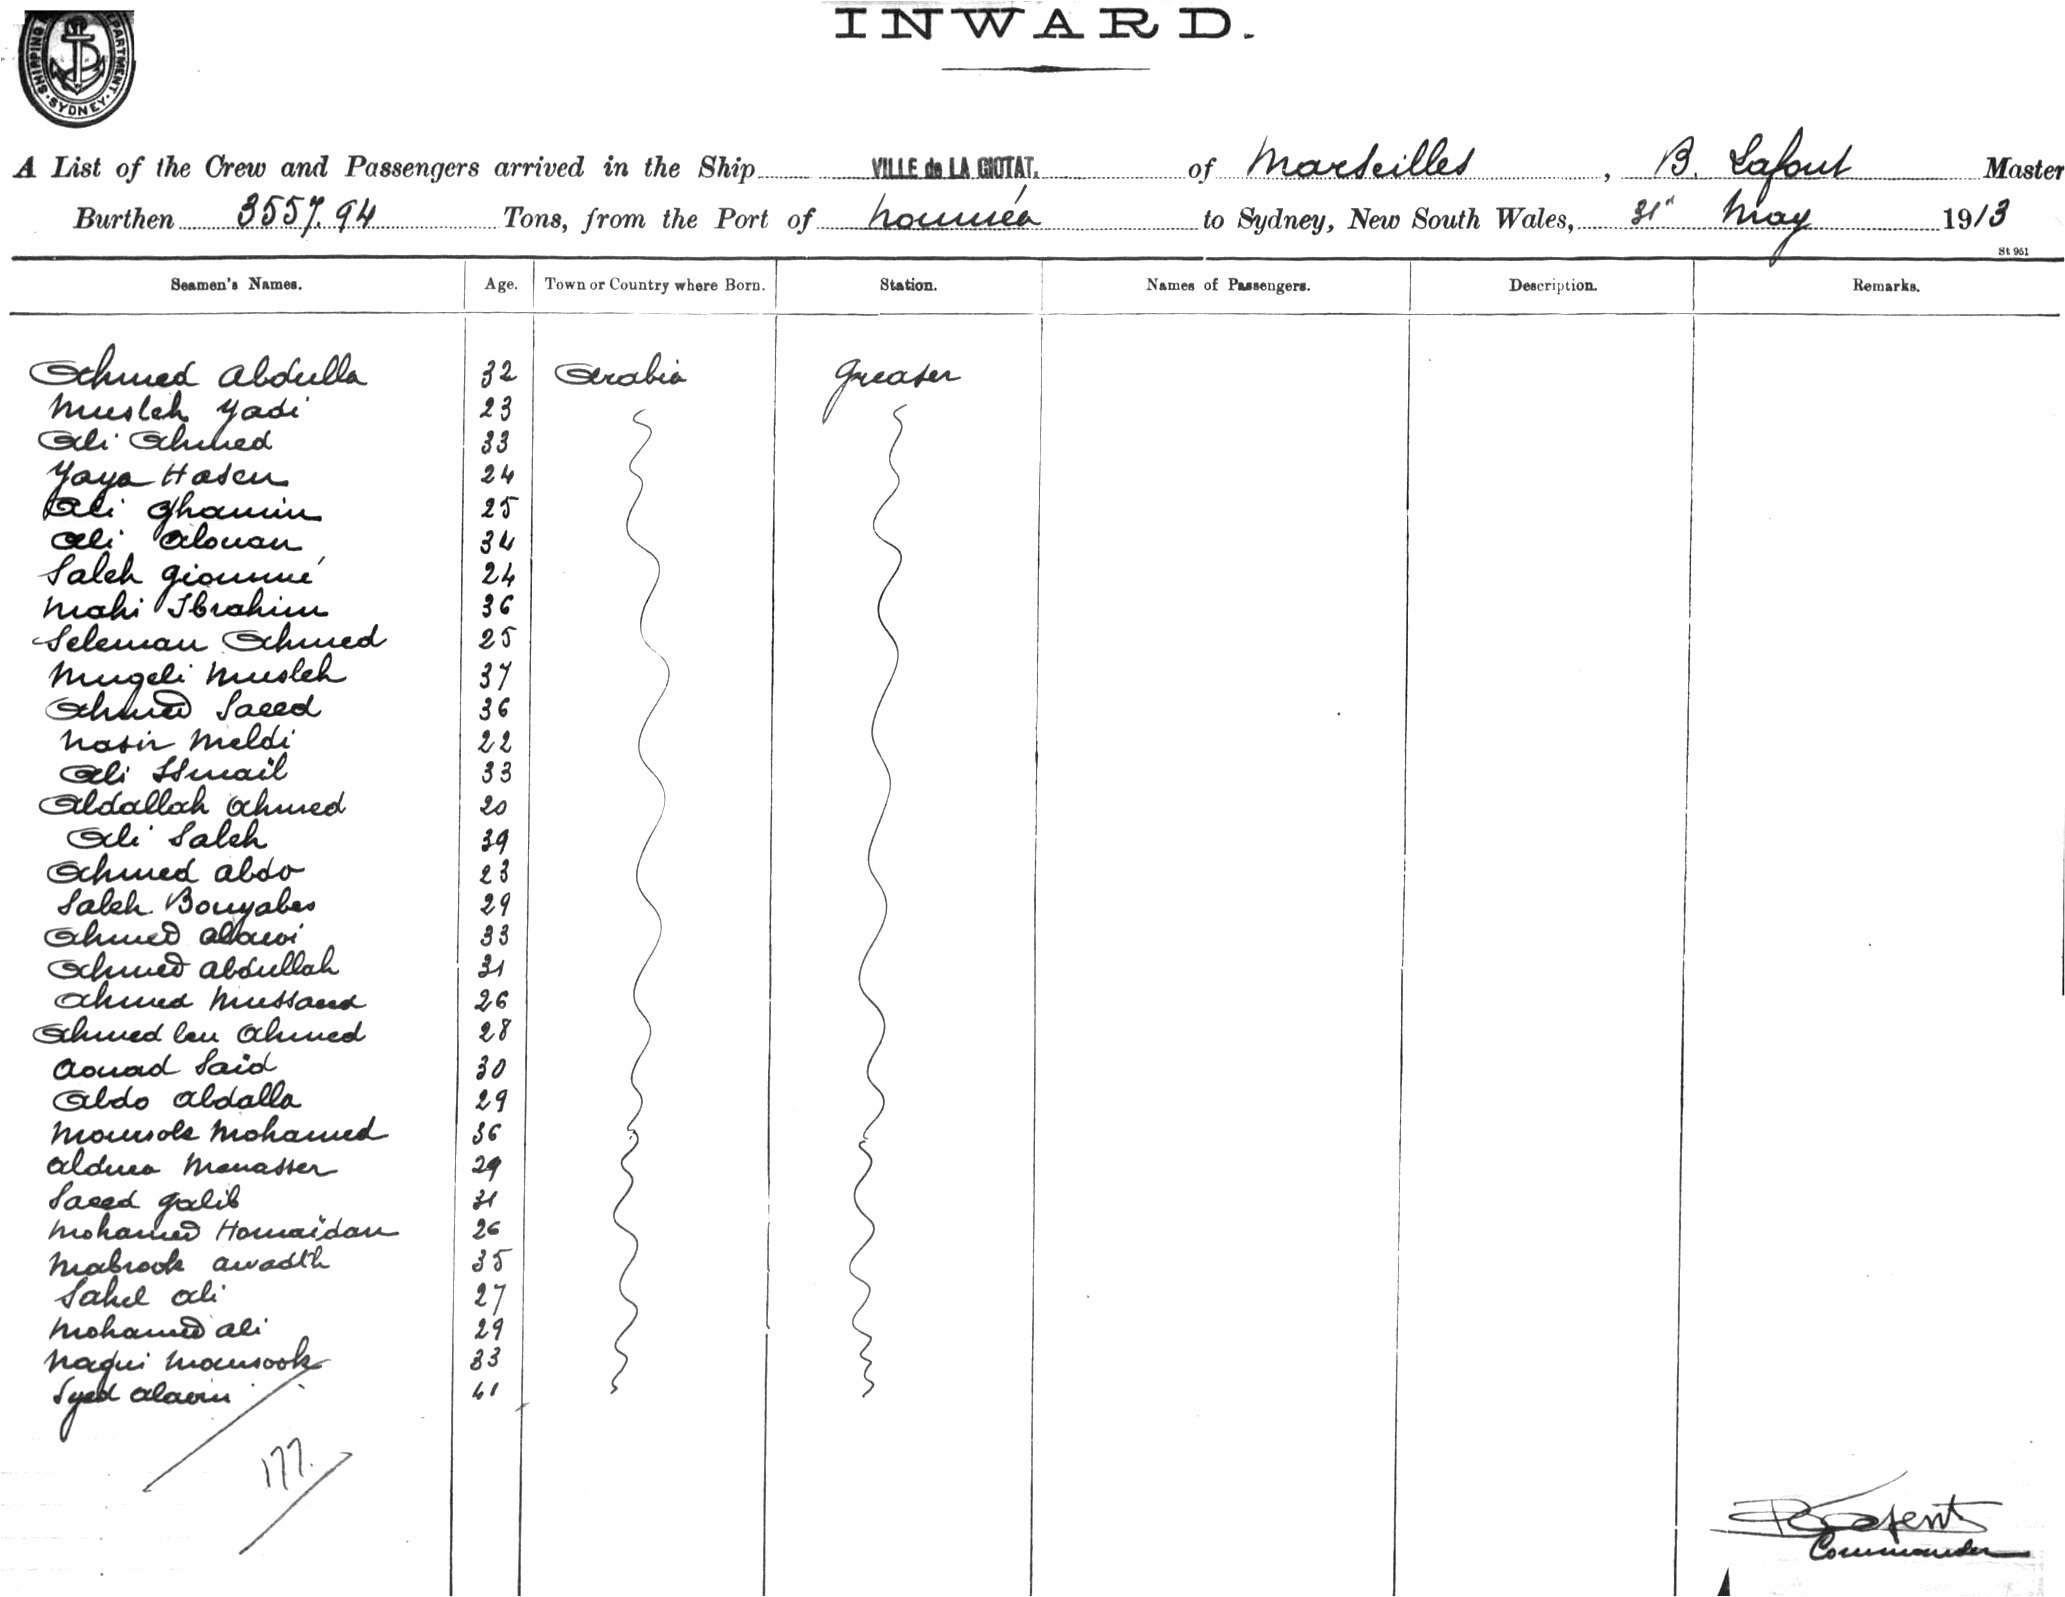 SHIPPING DEPARTMENT. SYDNEY.
INWARD.
A List of the Crew and Passengers arrived in the Ship VILLE de LA CIOTAT. of Marseilles, B. Lafont Master
Burthen 3557.94 Tons, from the Port of Nouméa to Sydney, New South Wales, 31st May 1913
St 951
Seamen's Names. Age. Town or Country where Born. Station. Names of Passengers. Description. Remarks.
Ahmed Abdulla 32 Arabia Greaser
Musleh Yadi 23
Ali Ahmed 33
Yaya Hasen 24
Ali Ghanim 25
Ali Alouan 34
Saleh Gioumé 24
Mahi Ibrahim 36
Seleman Ahmed 25
Mugeli Musleh 37
Ahmed Saeed 36
Nasir Meldi 22
Ali Ismail 33
Abdallah Ahmed 20
Ali Saleh 39
Ahmed Abdo 23
Saleh Bouyabes 29
Ahmed Alawi 33
Ahmed Abdullah 31
Ahmed Mussaed 26
Ahmed ben Ahmed 28
Aouad Saïd 30
Abdo Abdalla 29
Mohamed 36
Manasser 29
Saeed Galib 31
Mohamed Homaïdan 26
Mabrook Awadth 35
Sahel Ali 27
Mohamed Ali 29
Nagui 33
Syed 41
177.
Commander